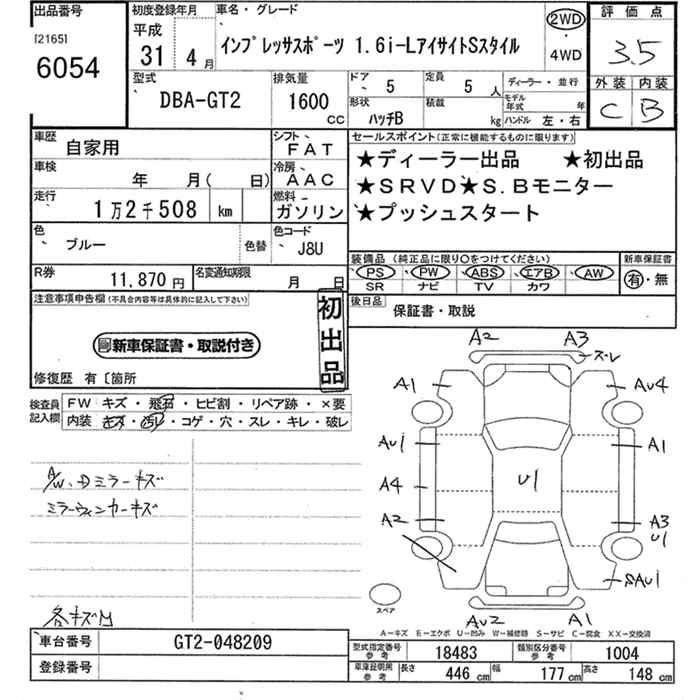 出品番号
[2165]
6054
初度登録年月
平成
31年 4月
車名・グレード
インプレッサスポーツ 1.6i-LアイサイトSスタイル
2WD
・
4WD
評価点
3.5
外装 内装
C B
型式
DBA-GT2
排気量
1600
CC
ドア
5
定員
5人
ディーラー・並行
形状
ハッチB
積載
kg
モデル年式 年
ハンドル 左・右
車歴
自家用
シフト
FAT
車検
年 月( 日)
冷房
AAC
走行
1万2千508 km
燃料
ガソリン
色
ブルー
色替
色コード
J8U
R券
11,870円
名変通知期限
月 日
セールスポイント(正常に機能するものに限ります)
★ディーラー出品 ★初出品
★SRVD★S.Bモニター
★プッシュスタート
装備品 (純正品に限り○をつけてください)
PS PW ABS エアB AW
SR ナビ TV カワ
新車保証書
有・無
後日品
保証書・取説
注意事項申告欄(不具合内容等は具体的に記入して下さい)
新車保証書・取説付き
初出品
修復歴 有〔箇所
検査員記入欄
FW キズ・飛石・ヒビ割・リペア跡・×要
内装 キズ・汚レ・コゲ・穴・スレ・キレ・破レ
A/W、Dミラーキズ
ミラーウィンカーキズ
各キズM
A2 A3
スレ
A1 AU4
AU1 A1
A4 U1
A2 A3
U1
SAU1
スペア
AU2 A1
A-キズ E-エクボ U-凹み W-補修跡 S-サビ C-腐食 XX-交換済
車台番号
GT2-048209
登録番号
型式指定番号
参考
18483
類別区分番号
参考
1004
車庫証明用
参考
長さ 446cm 幅 177cm 高さ 148cm